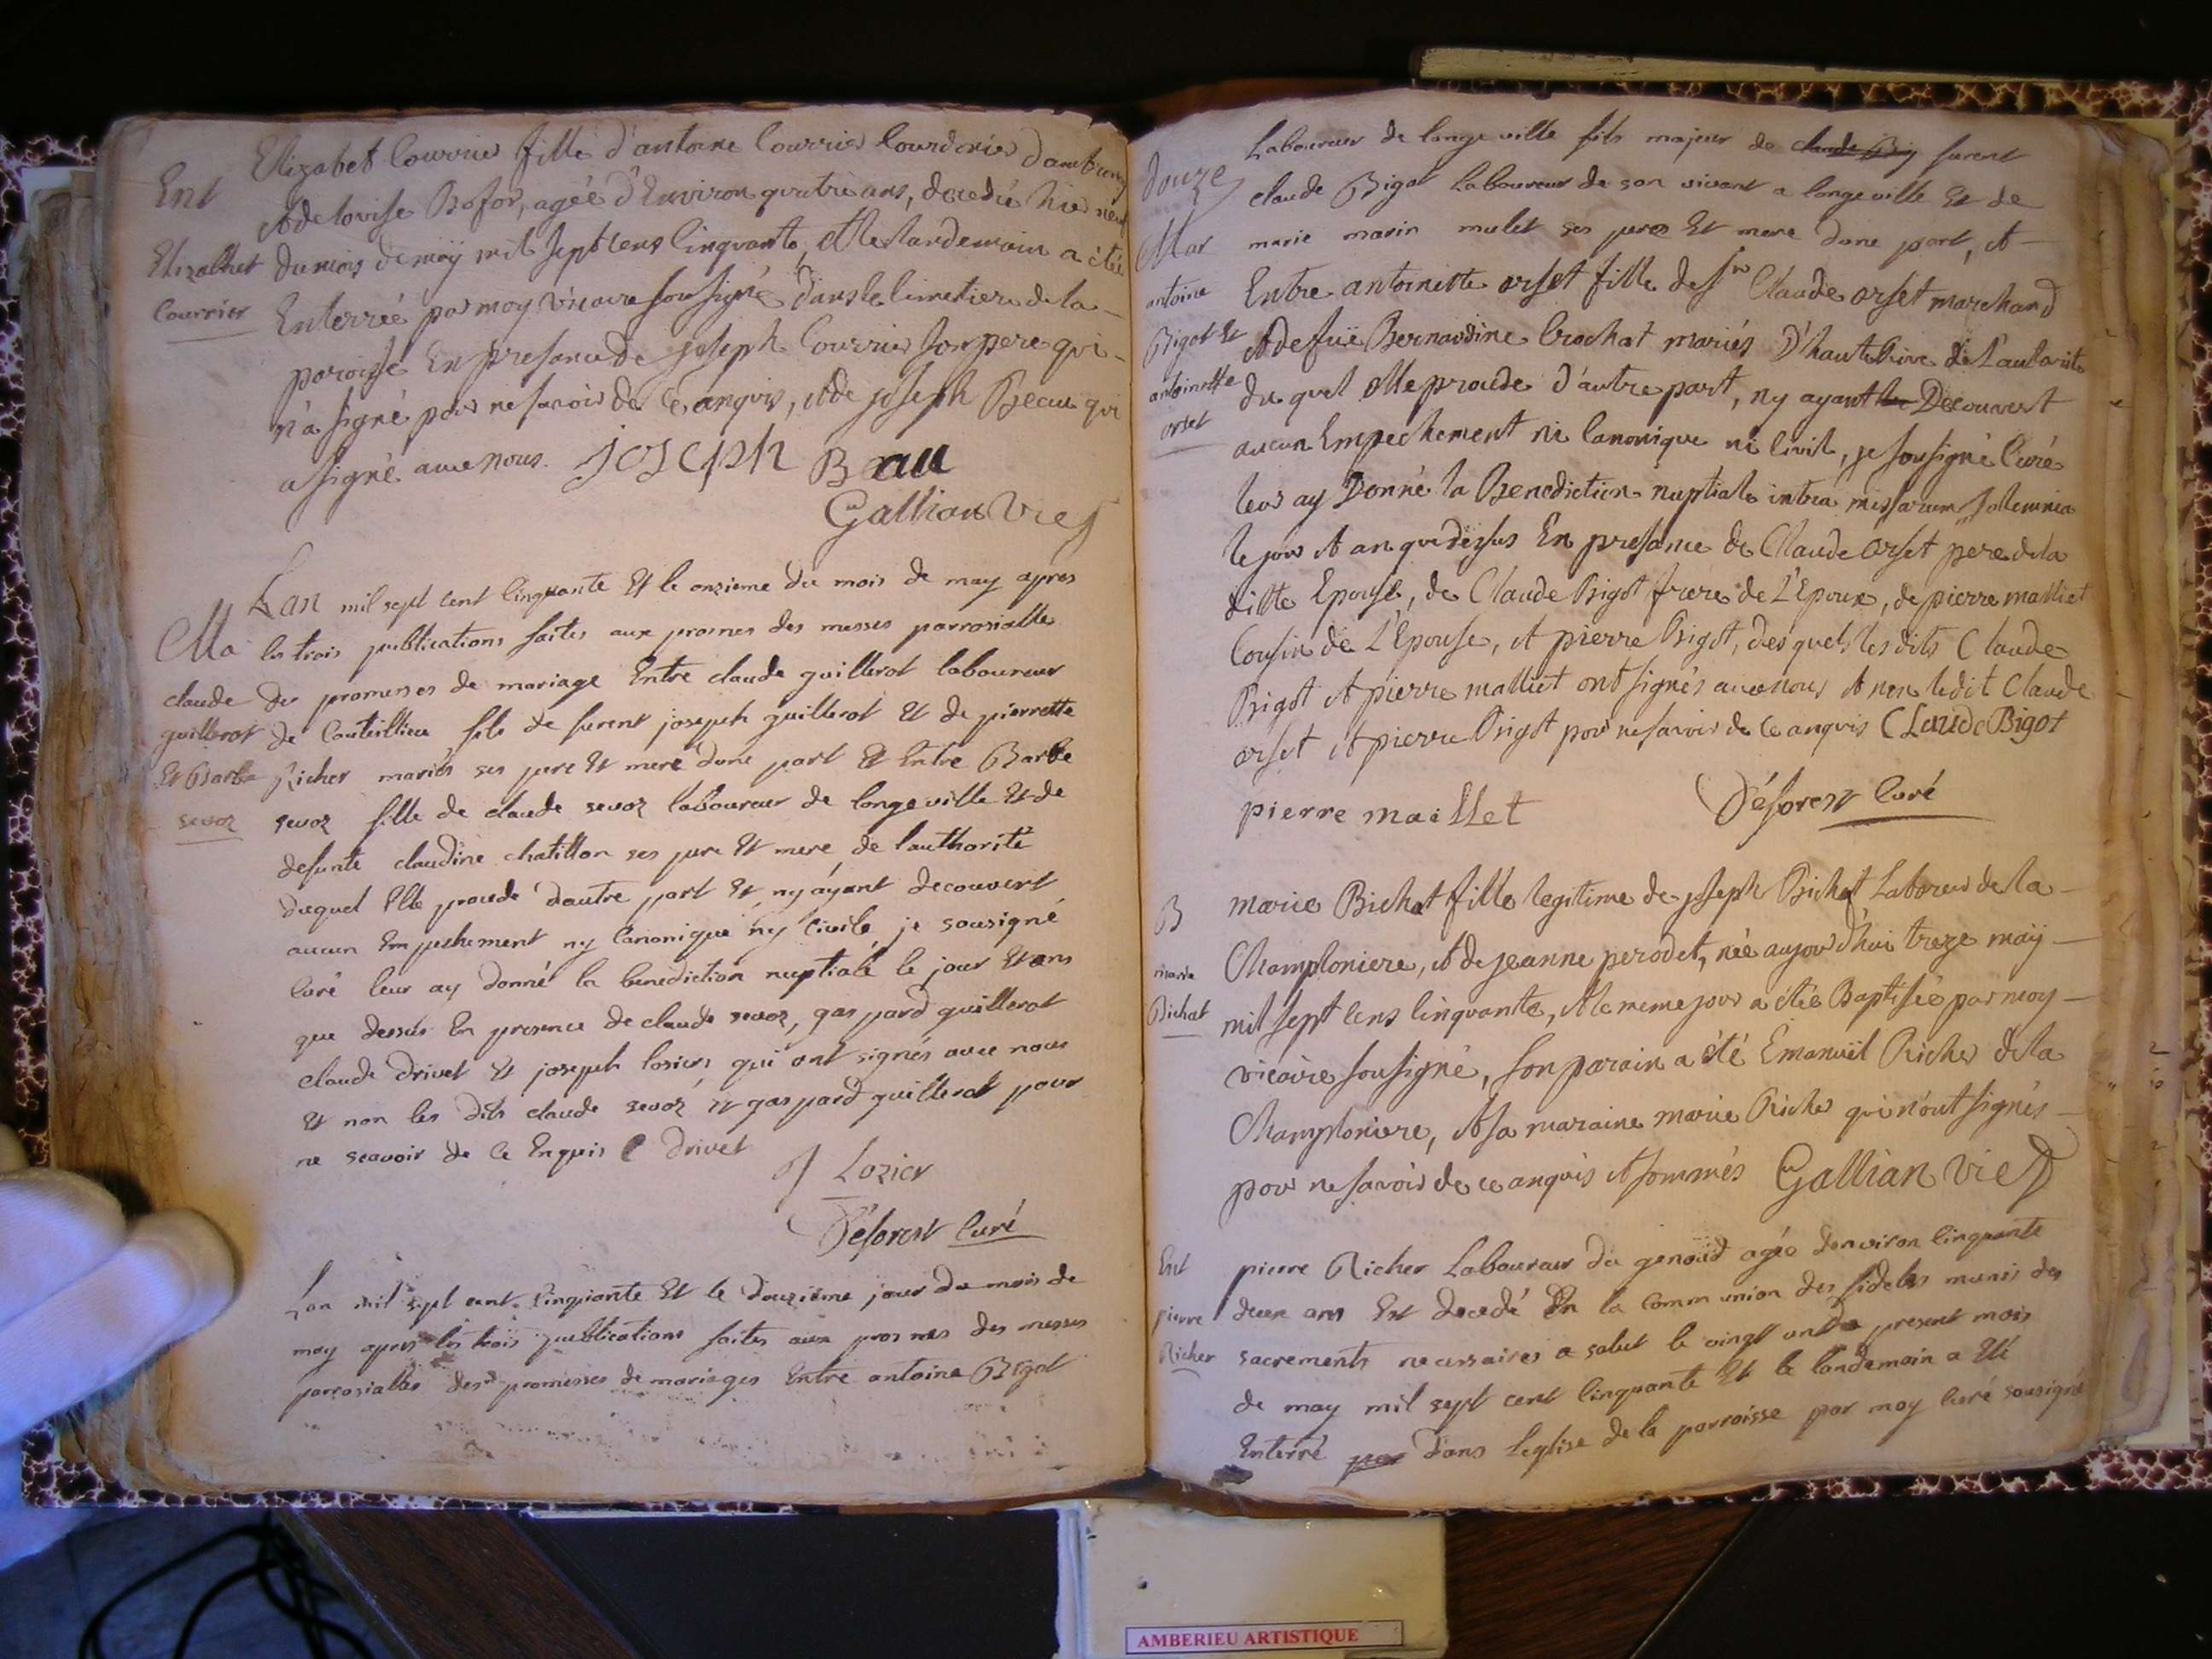 Ent
Elizabet
Courrier
Elizabet Courrier fille d'antoine Courrier
Et de lovise Bofor, agée d'Environ quatre ans, decedée hier neuf
du mois de may mil sept cens cinquante, et le landemain a étée
Enterrée par moy vicaire sousigné dans le cimetiere de la
paroisse En presence de joseph Courrier son pere qui
n'a signé pour ne savoir de ce anquis, et de joseph Beau qui
a signé avec nous. joseph Beau
Gallian vic
Ma
claude
guillerot
Et Barbe
sevoz
Lan mil sept cent cinquante Et le onzieme du mois de may apres
les trois publications faites aux prosnes des messes parrosialle
des promesses de mariage Entre claude guillerot laboureur
de Couteillieu fils de furent joseph guillerot Et de pierrette
Richer mariés ses pere Et mere dune part Et Entre Barbe
sevoz fille de claude sevoz laboureur de longeville Et de
defunte claudine chatillon ses pere Et mere de lauthorité
duquel Elle procede dautre part Et ny ayant decouvert
aucun Empechement ny Canonique ny Civile je sousigné
Curé leur ay donné la benediction nuptiale le jour Et ans
que dessus En presence de claude sevoz, gaspard guillerot
claude drivet Et joseph losier qui ont signés avec nous
Et non les dits claude sevoz Et gaspard guillerot pour
ne scavoir de ce Enquis C drivet
J Lozier
Déforest Curé
Lan mil sept cent cinquante Et le douzième jour du mois de
may apres les trois publications faites aux prosnes des messes
parrosialles des promesses de mariages Entre antoine Bigot
douze
Mar
antoine
Bigot Et
antoinette
orset
Laboureur de longeville fils majeur de claude Big furent
claude Bigot Laboureur de son vivant a longeville Et de
marie marin mulet ses peres Et mere dune part, et
Entre antoinette orset fille de Sr Claude orset marchand
Et de fuë Bernardine Crochat mariés D'hauterive de l'autorite
du quel elle procede d'autre part, ny ayant Decouvert
aucun Empechement ni Canonique ni Civil, je sousigné Curé
leur ay Donné la Benediction nuptiale intra missarum sollemnia
le jour et an que dessus En presance de Claude orset pere de la
ditte Epouse, de Claude Bigot frere de L'Epoux, de pierre malliet
Cousin de L'Epouse, et pierre Bigot, des quels les dits Claude
Bigot et pierre malliet ont signés avec nous et non ledit Claude
orset et pierre Bigot pour ne savoir de ce anquis CLaude Bigot
pierre maillet
Déforest Curé
B
marie
Bichat
marie Bichat fille legitime de joseph Bichat Laboreur de la
Champloniere, et de jeanne perodet, née aujourd'hui treze may
mil sept cens cinquante, et le meme jour a étée Baptisée par moy
vicaire sousigné, son parain a été Emanuël Richer de la
Champloniere, et sa maraine marie Richer qui n'ont signés
pour ne savoir de ce anquis et sommés Gallian vic
Ent
pierre
Richer
pierre Richer Laboureur du genoud agée denviron cinquante
deux ans Est decedé En la communion des fideles munis des
sacrements necessaires a salut le vingt present mois
de may mil sept cent cinquante Et le landemain a Eté
Enterré par dans leglise de la parroisse par moy curé sousigné
AMBERIEU ARTISTIQUE